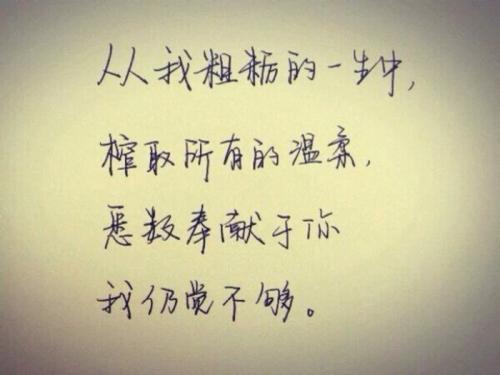 从我粗粝的一生中,
榨取所有的温柔,
悉数奉献于你
我仍觉不够。